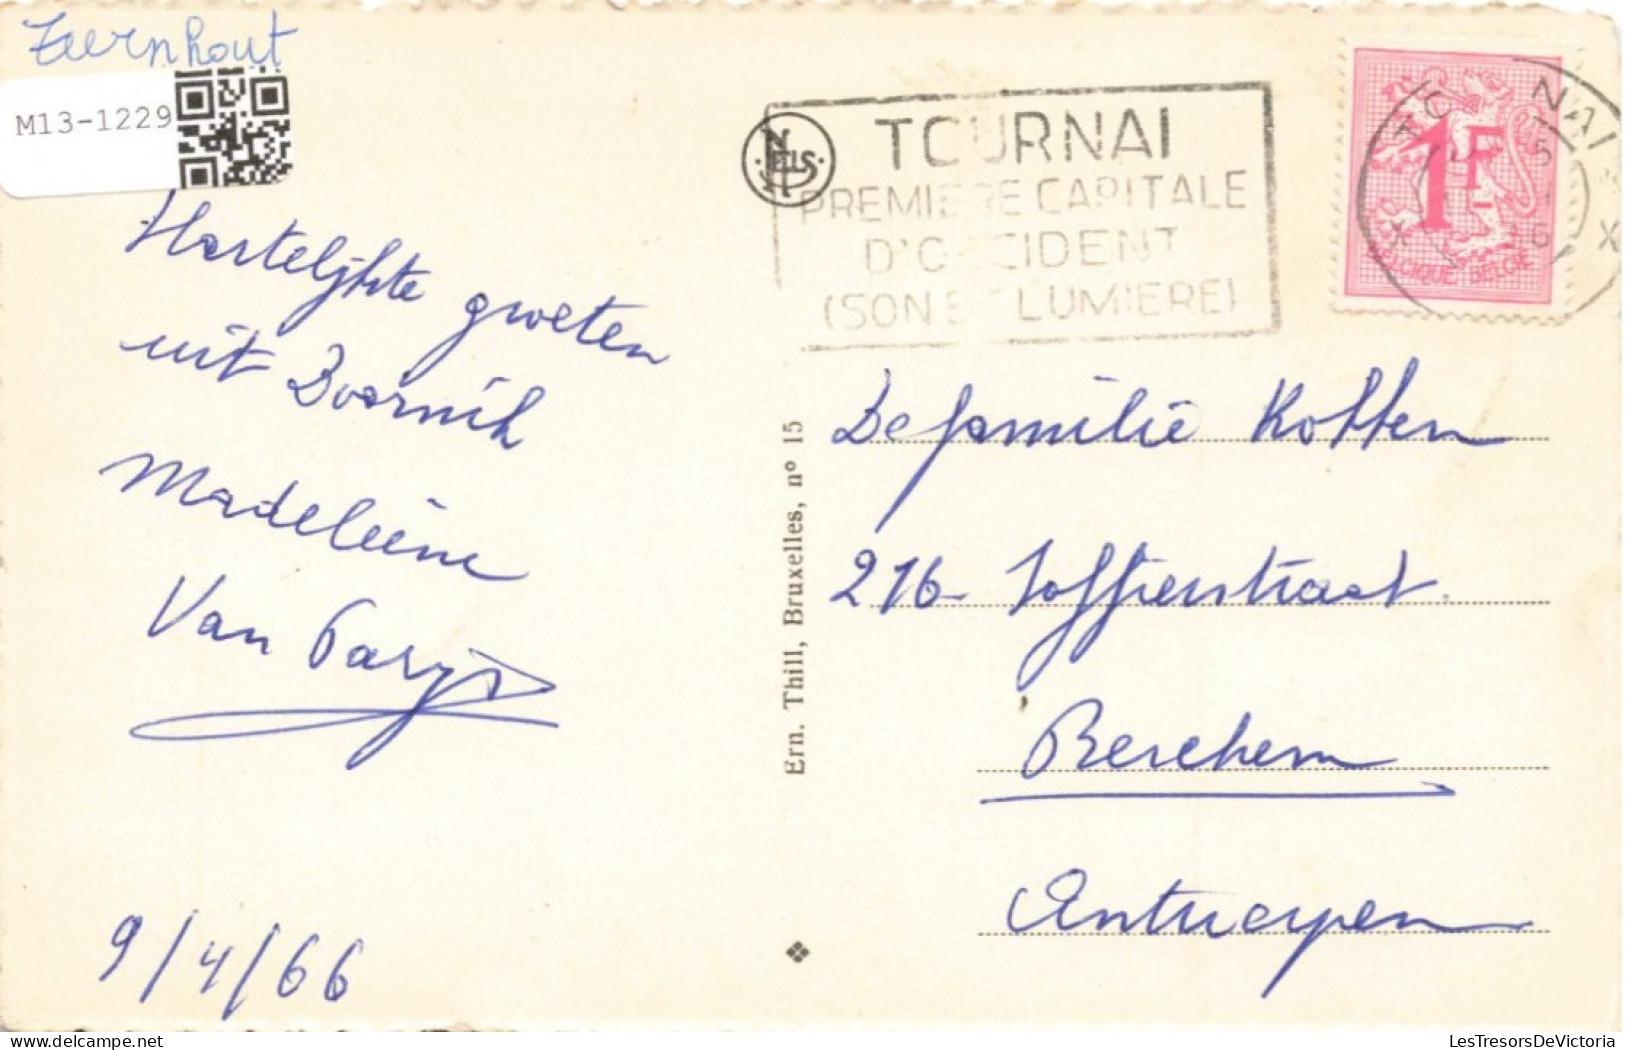 Zeernhout
M13-1229
NELS
TOURNAI
PREMIERE CAPITALE
D'OCCIDENT
(SON ET LUMIERE)
1F
BELGIQUE-BELGIE
Hartelijkte groeten
uit Doornik
Madeleine
Van Parys
9/4/66
Ern. Thill, Bruxelles, nº 15
De familie Kotten
216
Berchem
Antwerpen
LesTresorsDeVictoria
delcampe.net